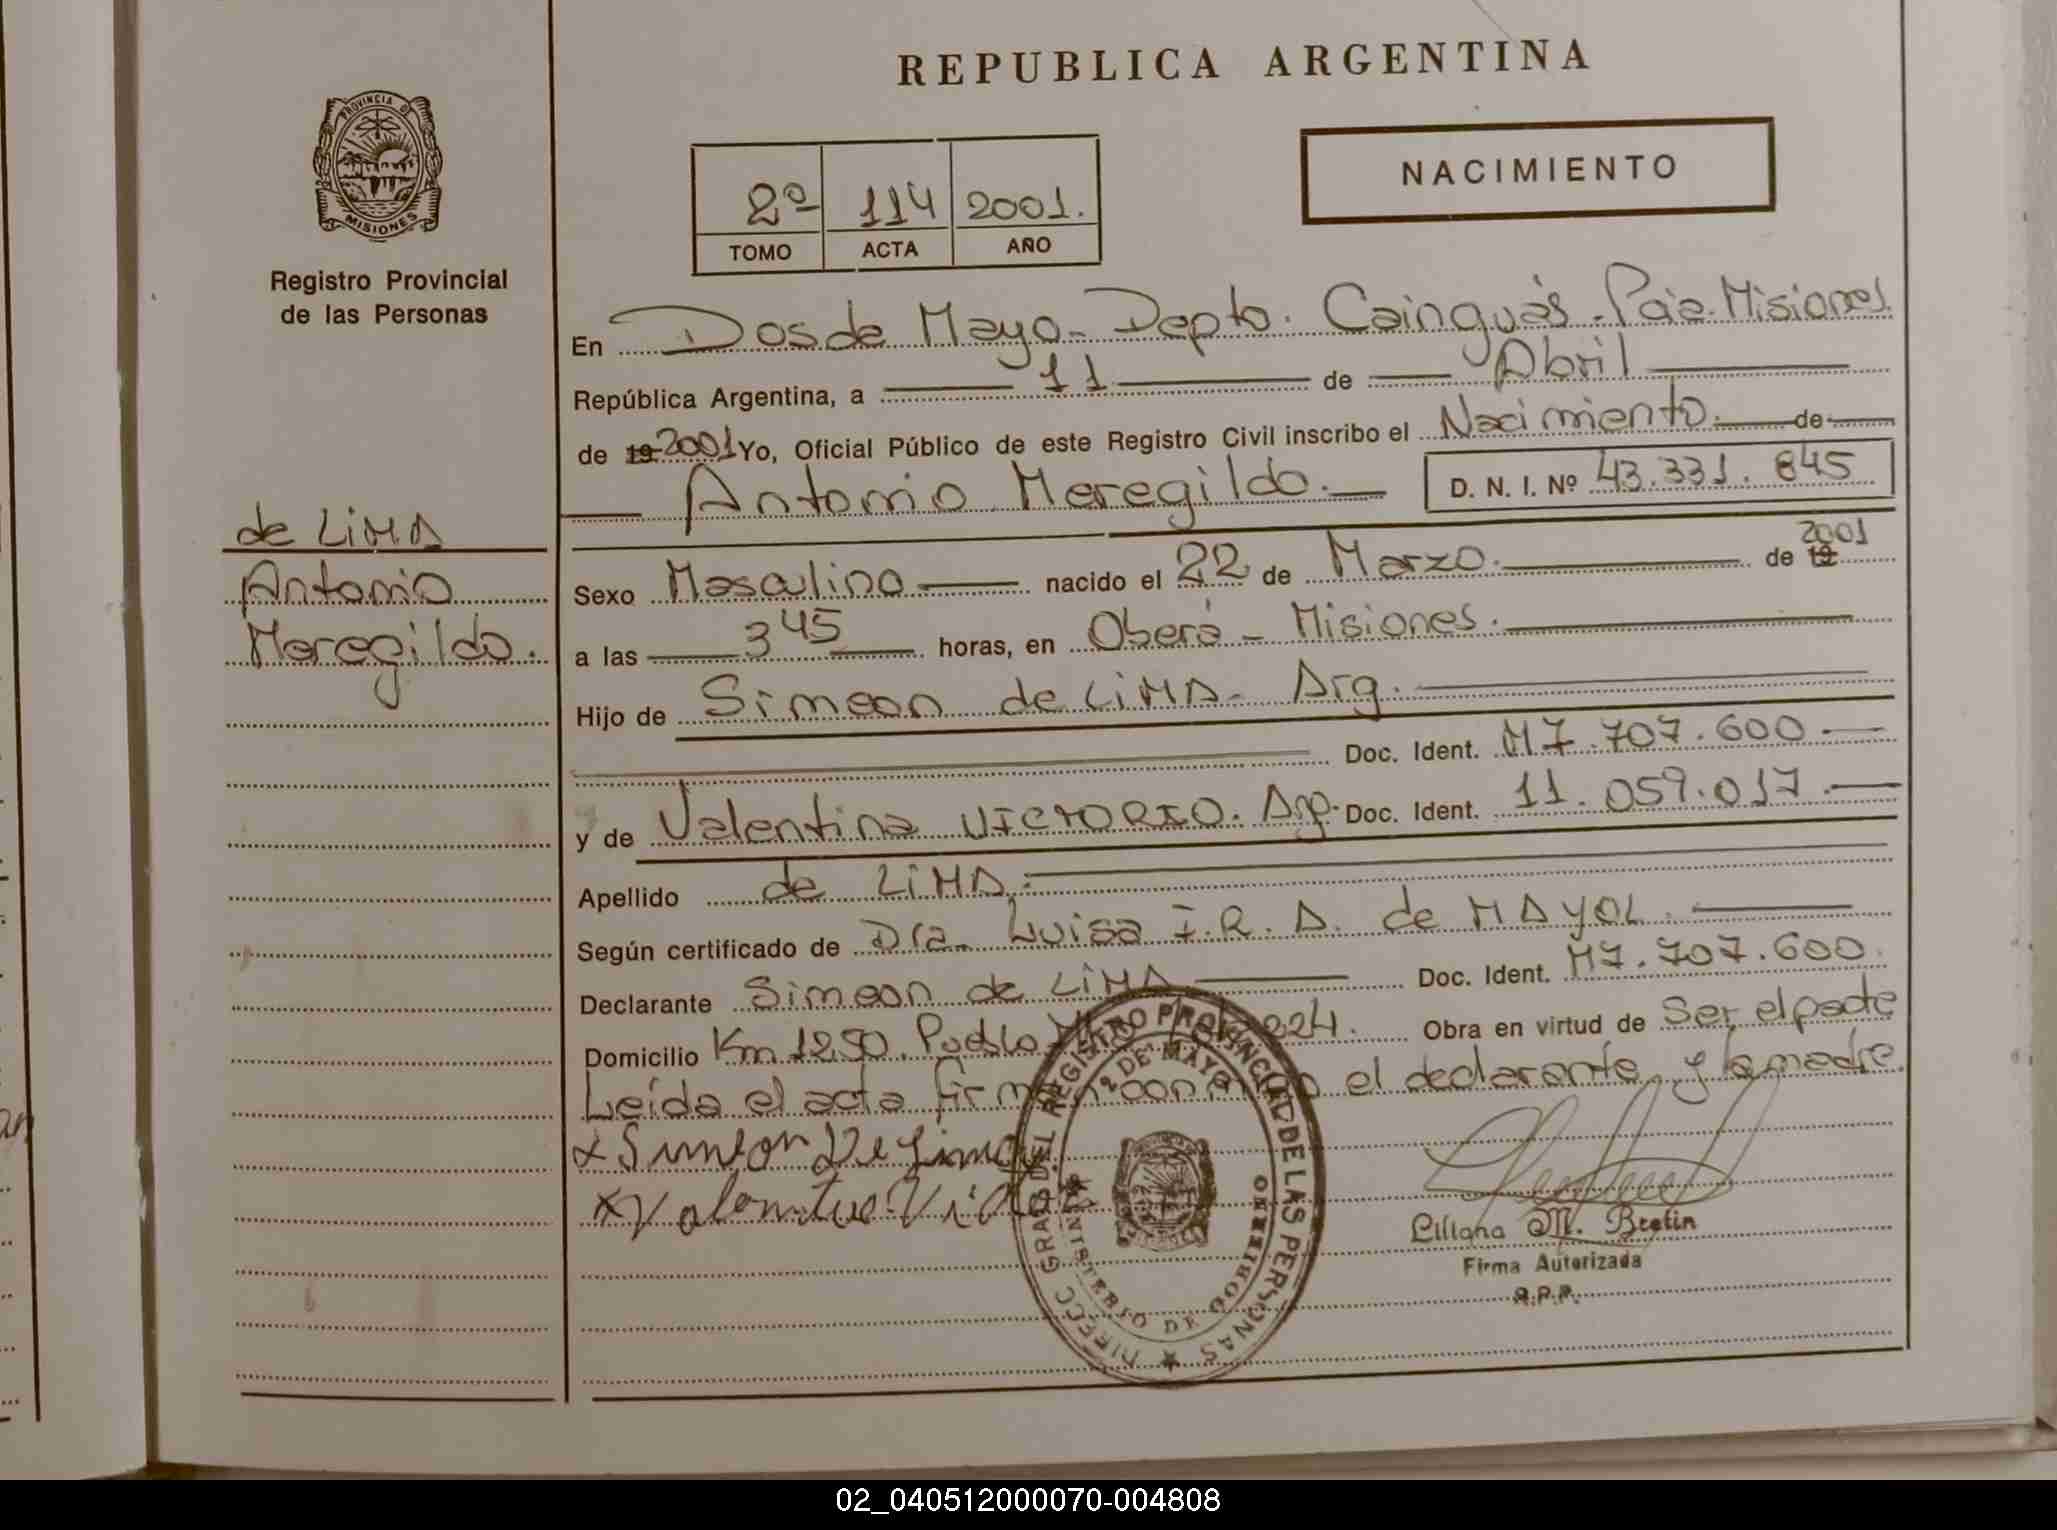 REPUBLICA ARGENTINA
PROVINCIA DE
MISIONES
Registro Provincial
de las Personas
NACIMIENTO
2º 114 2001.
TOMO ACTA AÑO
En Dos de Mayo - Depto. Cainguás - Pcia. Misiones.
República Argentina, a 11 de Abril
de 19 2001 Yo, Oficial Público de este Registro Civil inscribo el Nacimiento. de
Antonio Meregildo. D. N. I. Nº 43.331.845
de LiMA
Antonio
Meregildo.
Sexo Masculino nacido el 22 de Marzo. de 19 2001
a las 3 45 horas, en Oberá - Misiones.
Hijo de Simeon de LiMA - Arg.
Doc. Ident. M7.707.600
y de Valentina VICTORIO. Arg. Doc. Ident. 11.059.017.
Apellido de LiMA.
Según certificado de Dra. Luisa I.R.A. de MAYOL.
Declarante Simeon de LiMA Doc. Ident. M7.707.600.
Domicilio Km 1250. Pueblo 224. Obra en virtud de Ser el padre
Leída el acta firman el declarante y la madre.
x Simeon De Lima
x
DIRECC GRAL DEL REGISTRO PROVINCIAL DE LAS PERSONAS
2 DE MAYO
MINISTERIO DE GOBIERNO
Liliana M. Bretin
Firma Autorizada
R.P.P.
02_040512000070-004808